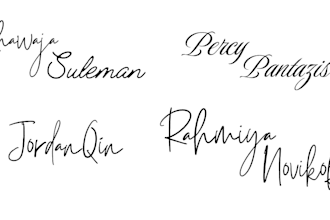 hawaja
Suleman
Percy
Pantazis
JordanQin
Rahmiya
Novikof